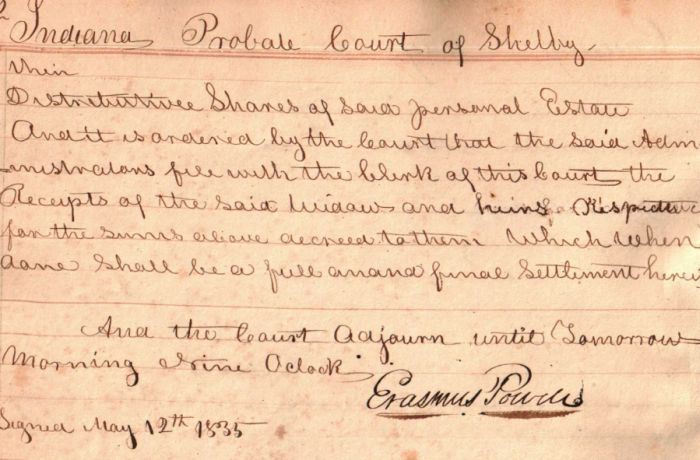 Indiana Probate Court of Shelby
their
Distributivee Shares of Said personal Estate
And it is ordered by the Court that the Said Adm-
inistrators file with the Clerk of this Court the
Receipts of the Said Widow and heirs Respective
for the sums above decreed to them Which When
done Shall be a full anand final Settlement herei
And the Court Adjourn until Tomorrow
Morning Nine Oclock
Erasmus Powell
Signed May 12th 1835